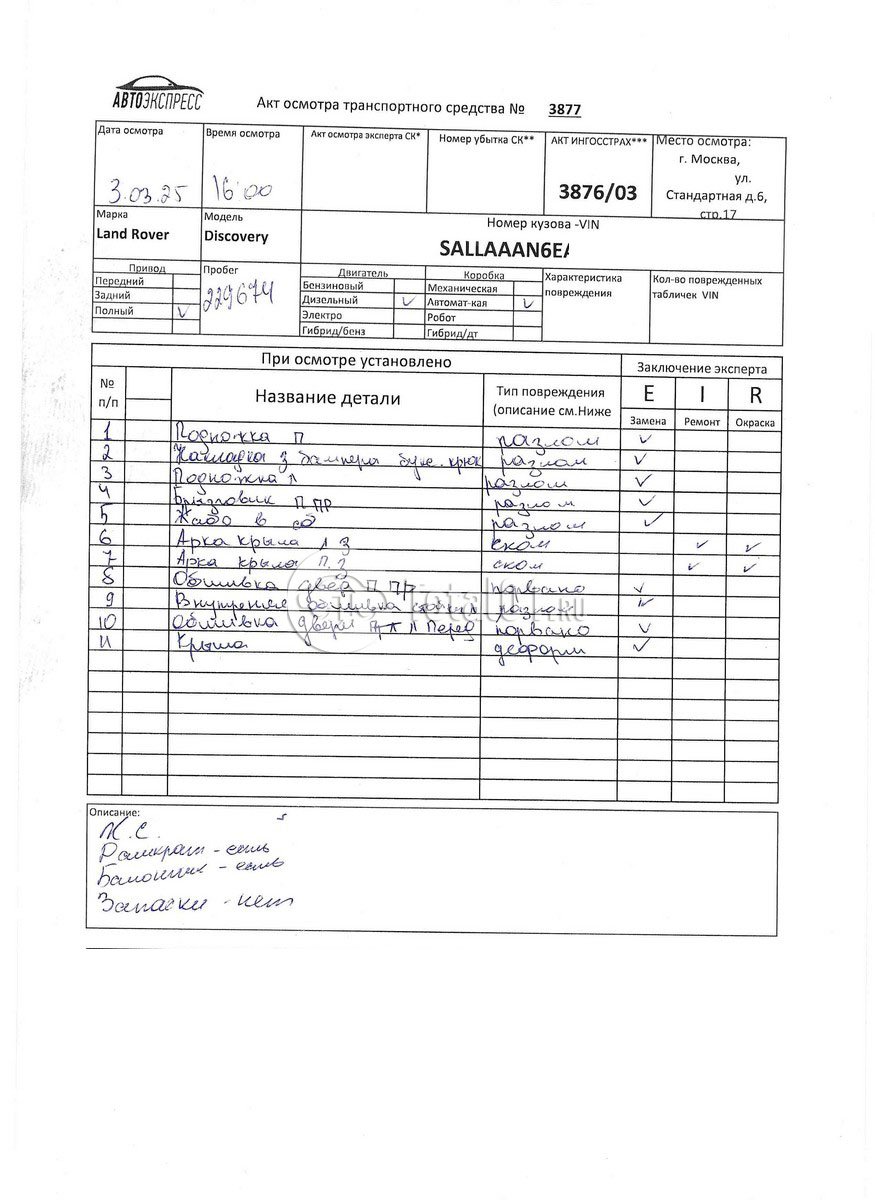 АВТОЭКСПРЕСС
Акт осмотра транспортного средства № 3877
Дата осмотра
3.03.25
Время осмотра
16 00
Акт осмотра эксперта СК*
Номер убытка СК**
АКТ ИНГОССТРАХ***
3876/03
Место осмотра:
г. Москва,
ул.
Стандартная д.6,
стр.17
Марка
Land Rover
Модель
Discovery
Номер кузова -VIN
SALLAAAN6EA
Привод
Передний
Задний
Полный ✓
Пробег
229674
Двигатель
Бензиновый
Дизельный ✓
Электро
Гибрид/бенз
Коробка
Механическая
Автомат-кая ✓
Робот
Гибрид/дт
Характеристика
повреждения
Кол-во поврежденных
табличек VIN
При осмотре установлено
Заключение эксперта
№
п/п
Название детали
Тип повреждения
(описание см.Ниже
E I R
Замена Ремонт Окраска
1 Подножка П разлом ✓
2 Накладка з бампера букс. крюк разлом ✓
3 Подножка Л разлом ✓
4 Брызговик П ПР разлом ✓
5 Жабо в сб разлом ✓
6 Арка крыла Л З ском ✓ ✓
7 Арка крыла П.З ском ✓ ✓
8 Обшивка двер П ПР порвано ✓
9 Внутренняя обшивка разлом ✓
10 Обшивка двери Л Перед порвано ✓
11 Крыша деформ ✓
Описание:
К.С.
Домкрат - есть
Балонник - есть
Запаски - нет